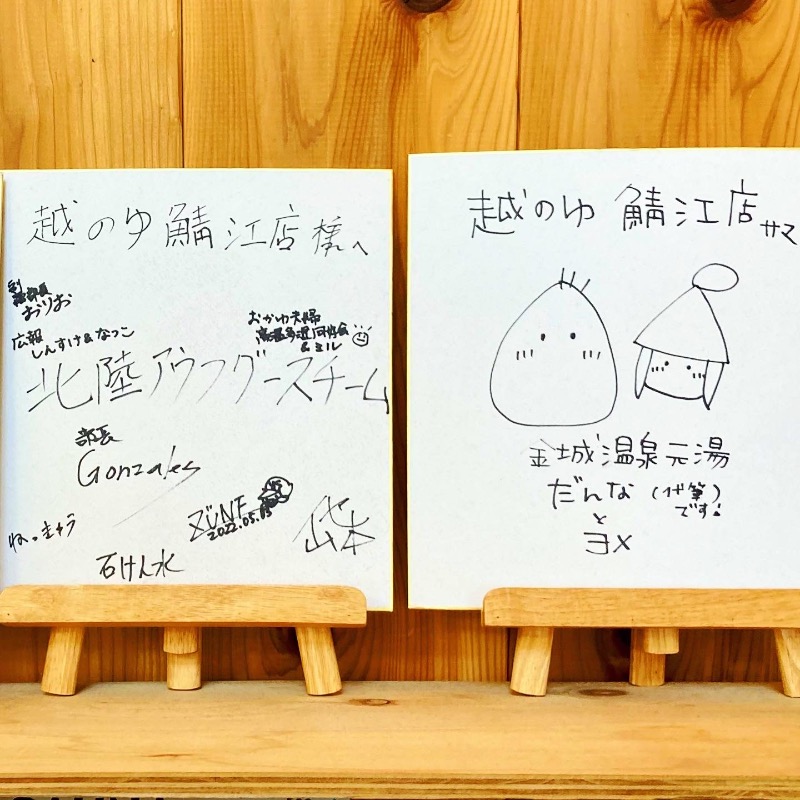 越のゆ鯖江店様へ
副部長
おりお
広報
しんすけ&なつこ
おかゆ夫婦
高温多湿同好会
&ミル
北陸アウフグースチーム
部長
Gonzales
ZÜNF
2022.05.15
ねっきゅう
石けん水
越のゆ 鯖江店サマ
金城温泉元湯
だんな(代筆)です!
と
ヨメ